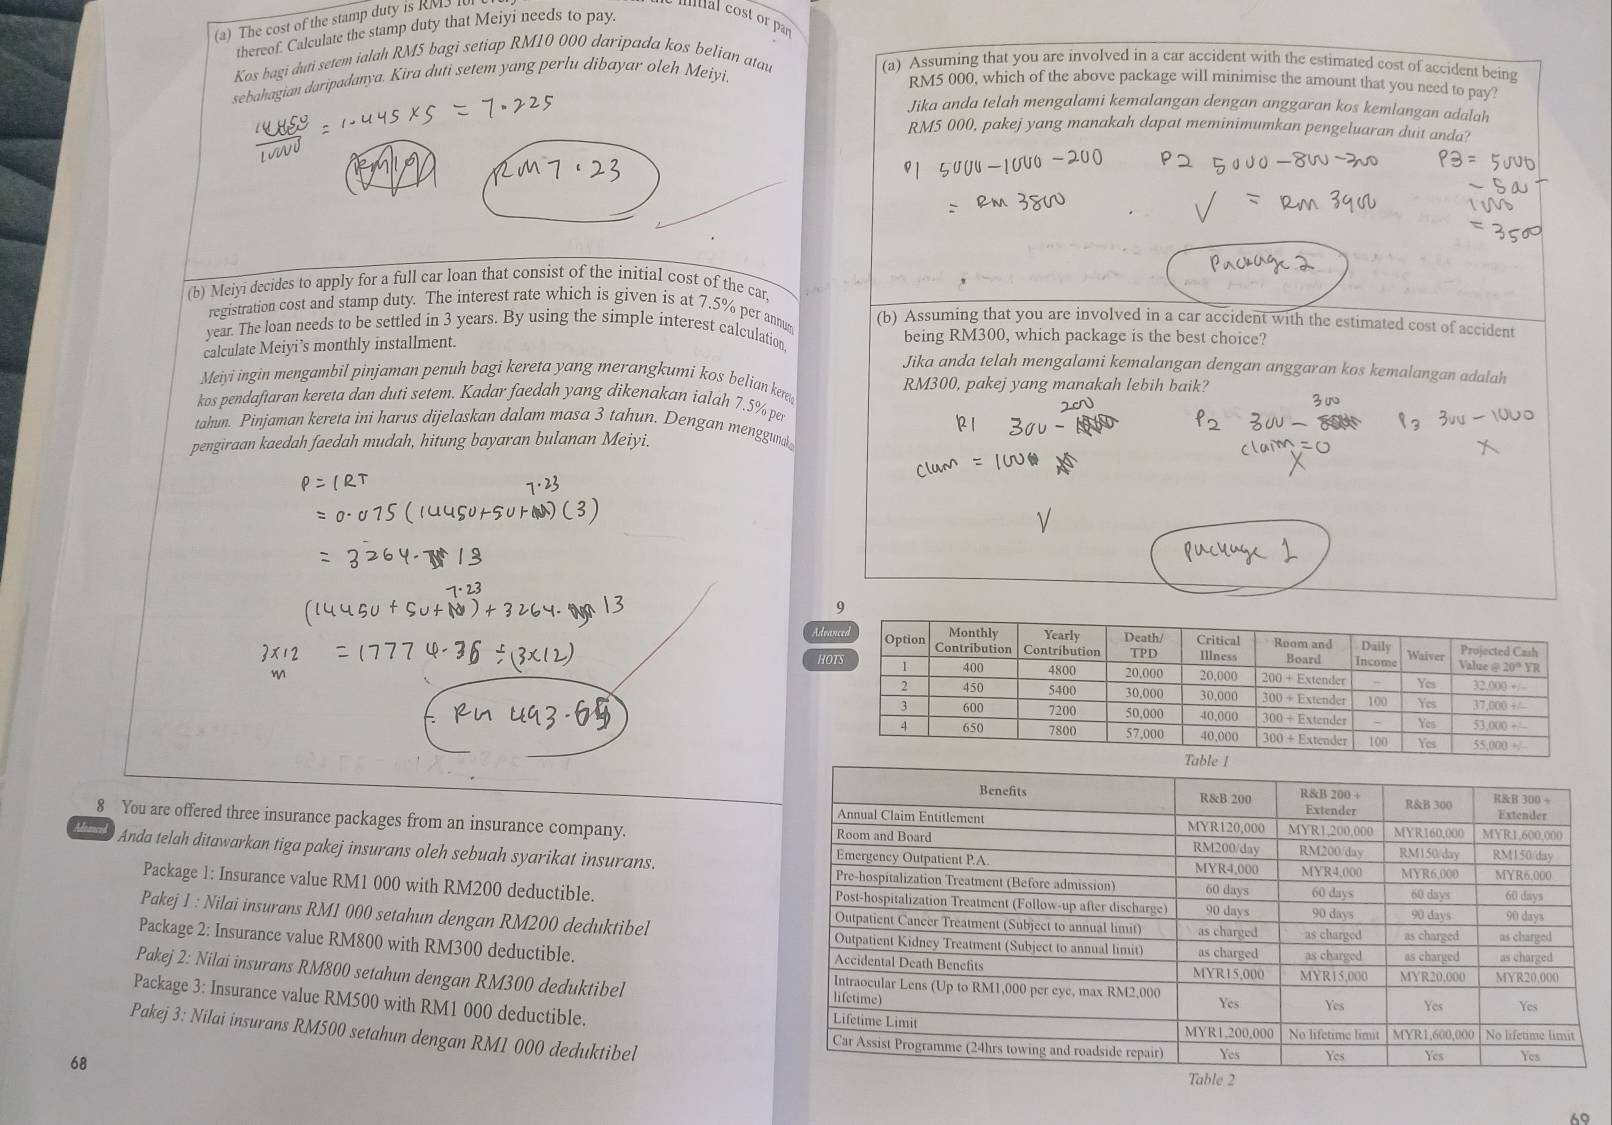 (a) The cost of the stamp duty is RM5 for
initial cost or part
thereof. Calculate the stamp duty that Meiyi needs to pay.
Kos bagi duti setem ialah RM5 bagi setiap RM10 000 daripada kos belian atau
sebahagian daripadanya. Kira duti setem yang perlu dibayar oleh Meiyi.
= 1.445 x 5 = 7.225
RM7.23
(b) Meiyi decides to apply for a full car loan that consist of the initial cost of the car,
registration cost and stamp duty. The interest rate which is given is at 7.5% per annum
year. The loan needs to be settled in 3 years. By using the simple interest calculation,
calculate Meiyi's monthly installment.
Meiyi ingin mengambil pinjaman penuh bagi kereta yang merangkumi kos belian kereta
kos pendaftaran kereta dan duti setem. Kadar faedah yang dikenakan ialah 7.5% per
tahun. Pinjaman kereta ini harus dijelaskan dalam masa 3 tahun. Dengan menggunaka
pengiraan kaedah faedah mudah, hitung bayaran bulanan Meiyi.
P = IRT
7.23
= 0.075 (14450+50+ ) (3)
= 3264. 13
7.23
(14450 + 50 + ) + 3264. 13
3x12 = 17774.36 ÷ (3x12)
m
= RM 493.
8 You are offered three insurance packages from an insurance company.
Advanced Anda telah ditawarkan tiga pakej insurans oleh sebuah syarikat insurans.
Package 1: Insurance value RM1 000 with RM200 deductible.
Pakej 1 : Nilai insurans RM1 000 setahun dengan RM200 deduktibel
Package 2: Insurance value RM800 with RM300 deductible.
Pakej 2: Nilai insurans RM800 setahun dengan RM300 deduktibel
Package 3: Insurance value RM500 with RM1 000 deductible.
Pakej 3: Nilai insurans RM500 setahun dengan RM1 000 deduktibel
68
(a) Assuming that you are involved in a car accident with the estimated cost of accident being
RM5 000, which of the above package will minimise the amount that you need to pay?
Jika anda telah mengalami kemalangan dengan anggaran kos kemlangan adalah
RM5 000, pakej yang manakah dapat meminimumkan pengeluaran duit anda?
P1 5000-1000-200 P2 5000-800-300 P3 = 5000
- 500 -
= RM 3800 √ = RM 3900 1000
= 3500
Package 2
(b) Assuming that you are involved in a car accident with the estimated cost of accident
being RM300, which package is the best choice?
Jika anda telah mengalami kemalangan dengan anggaran kos kemalangan adalah
RM300, pakej yang manakah lebih baik?
200 300
P1 300 - P2 300 - P3 300 - 1000
claim = 100 claim = 0 X
X
√
package 1
9
Advanced
HOTS
Option Monthly Contribution Yearly Contribution Death/ TPD Critical Illness Room and Board Daily Income Waiver Projected Cash Value @ 20th YR
1 400 4800 20,000 20,000 200 + Extender – Yes 32,000 +/–
2 450 5400 30,000 30,000 300 + Extender 100 Yes 37,000 +/–
3 600 7200 50,000 40,000 300 + Extender – Yes 53,000 +/–
4 650 7800 57,000 40,000 300 + Extender 100 Yes 55,000 +/–
Table 1
Benefits R&B 200 R&B 200 + Extender R&B 300 R&B 300 + Extender
Annual Claim Entitlement MYR120,000 MYR1,200,000 MYR160,000 MYR1,600,000
Room and Board RM200/day RM200/day RM150/day RM150/day
Emergency Outpatient P.A. MYR4,000 MYR4,000 MYR6,000 MYR6,000
Pre-hospitalization Treatment (Before admission) 60 days 60 days 60 days 60 days
Post-hospitalization Treatment (Follow-up after discharge) 90 days 90 days 90 days 90 days
Outpatient Cancer Treatment (Subject to annual limit) as charged as charged as charged as charged
Outpatient Kidney Treatment (Subject to annual limit) as charged as charged as charged as charged
Accidental Death Benefits MYR15,000 MYR15,000 MYR20,000 MYR20,000
Intraocular Lens (Up to RM1,000 per eye, max RM2,000 lifetime) Yes Yes Yes Yes
Lifetime Limit MYR1,200,000 No lifetime limit MYR1,600,000 No lifetime limit
Car Assist Programme (24hrs towing and roadside repair) Yes Yes Yes Yes
Table 2
69